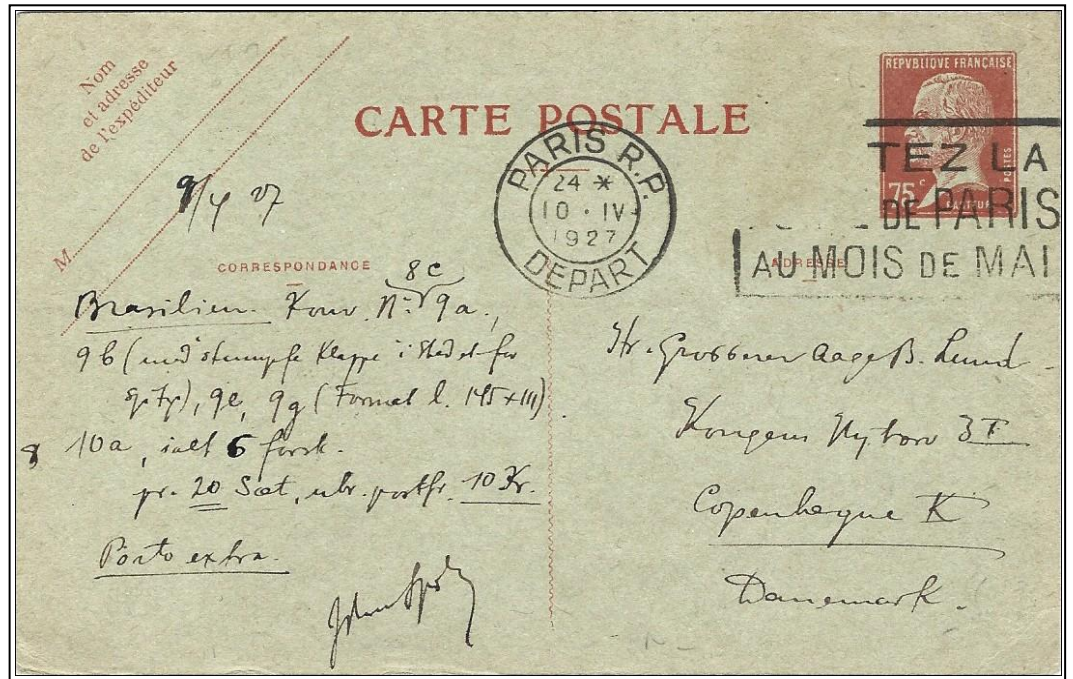 Nom
et adresse
de l'expéditeur
M
CARTE POSTALE
REPVBLIQUE FRANÇAISE
POSTES
75 c
PASTEUR
PARIS R.P.
24 *
10 · IV ·
1927
DEPART
TEZ LA
DE PARIS
AU MOIS DE MAI
9/4 27
CORRESPONDANCE
ADRESSE
8c
Brasilien. Kouv. No 9a,
9b (med "stumpfe Klappe" i Stedet for
Spitz), 9e, 9g (Format l. 145 x 111)
10a, ialt 6 forsk.
pr. 20 Sæt, ubr. portfr. 10 Kr.
Porto extra.
Hr. Grosserer Aage B. Lund
Kongens Nytorv 3
Copenhague K
Danemark.